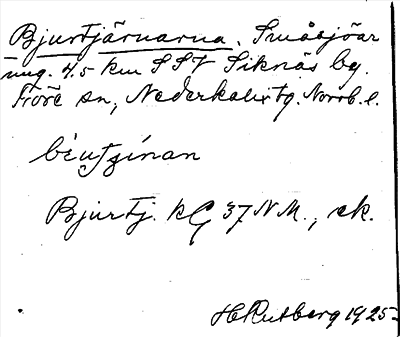 Bjurtjärnarna. Småsjöar
ung. 4.5 km SSV Siknäs by.
Töre sn, Nederkalix tg. Norrb. l.
Bjurtj. kG 37 N M., ek.
H Rutberg 1925